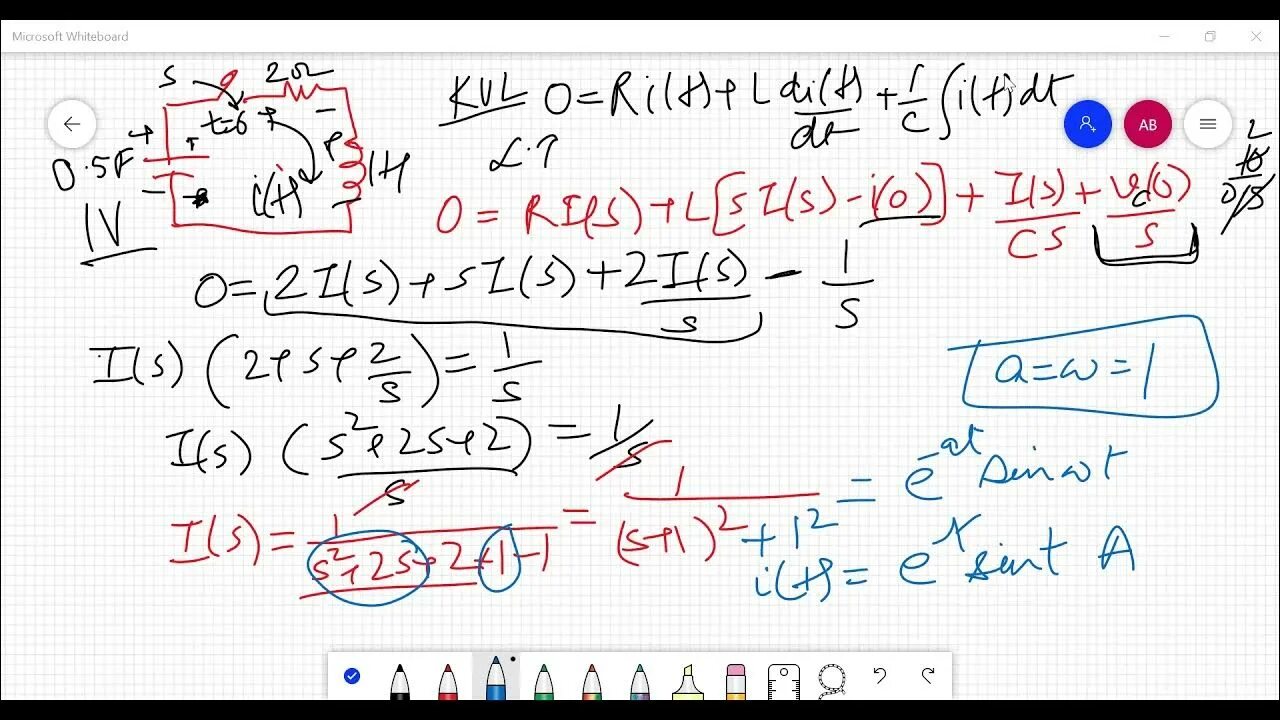 Microsoft Whiteboard
S 2Ω
t=0
0.5F i(t) 1H
1V
KVL 0 = Ri(t) + L di(t)/dt + 1/C ∫i(t)dt
AB
0 = RI(s) + L[sI(s) - i(0)] + I(s)/Cs + Vc(0)/s
0 = 2I(s) + sI(s) + 2I(s)/s - 1/s
I(s) (2+s+2/s) = 1/s
a=ω=1
I(s) (s²+2s+2)/s = 1/s
I(s) = 1/(s²+2s+2+1-1) = 1/((s+1)²+1²) = e^-at sin ωt
i(t) = e^-t sint A